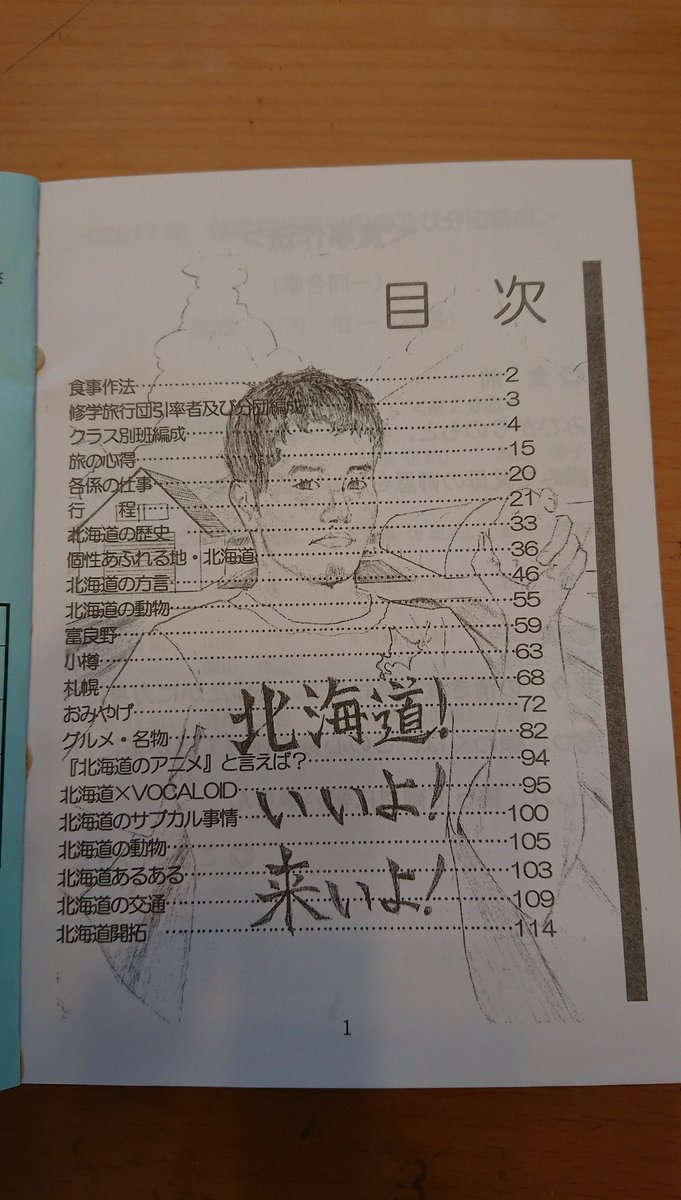 目次
食事作法……2
修学旅行団引率者及び分団編成……3
クラス別班編成……4
旅の心得……15
各係の仕事……20
行程……21
北海道の歴史……33
個性あふれる地・北海道……36
北海道の方言……46
北海道の動物……55
富良野……59
小樽……63
札幌……68
おみやげ……72
グルメ・名物……82
『北海道のアニメ』と言えば?……94
北海道×VOCALOID……95
北海道のサブカル事情……100
北海道の動物……105
北海道あるある……103
北海道の交通……109
北海道開拓……114
北海道!
いいよ!
来いよ!
1